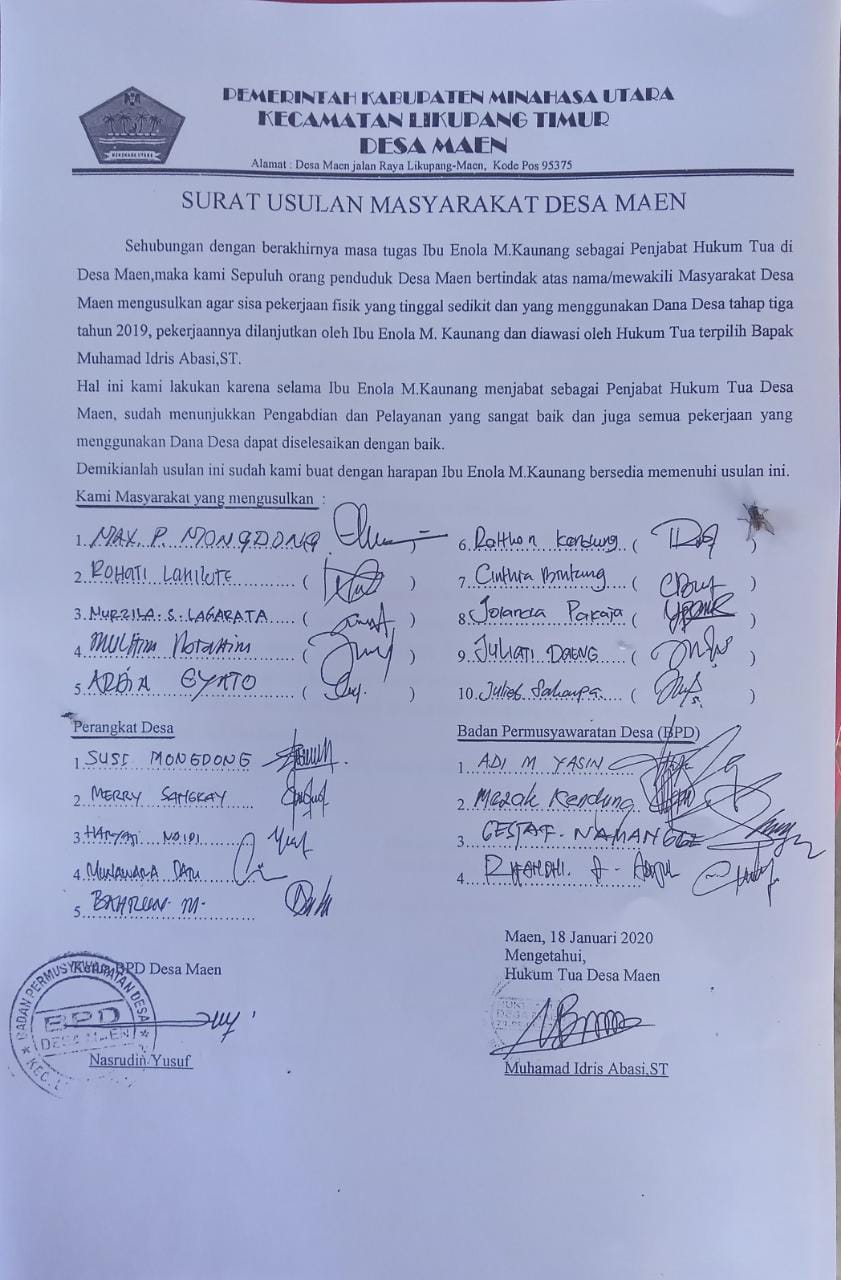 PEMERINTAH KABUPATEN MINAHASA UTARA
KECAMATAN LIKUPANG TIMUR
DESA MAEN
Alamat : Desa Maen jalan Raya Likupang-Maen, Kode Pos 95375
MINAHASA UTARA
SURAT USULAN MASYARAKAT DESA MAEN
Sehubungan dengan berakhirnya masa tugas Ibu Enola M.Kaunang sebagai Penjabat Hukum Tua di
Desa Maen,maka kami Sepuluh orang penduduk Desa Maen bertindak atas nama/mewakili Masyarakat Desa
Maen mengusulkan agar sisa pekerjaan fisik yang tinggal sedikit dan yang menggunakan Dana Desa tahap tiga
tahun 2019, pekerjaannya dilanjutkan oleh Ibu Enola M. Kaunang dan diawasi oleh Hukum Tua terpilih Bapak
Muhamad Idris Abasi,ST.
Hal ini kami lakukan karena selama Ibu Enola M.Kaunang menjabat sebagai Penjabat Hukum Tua Desa
Maen, sudah menunjukkan Pengabdian dan Pelayanan yang sangat baik dan juga semua pekerjaan yang
menggunakan Dana Desa dapat diselesaikan dengan baik.
Demikianlah usulan ini sudah kami buat dengan harapan Ibu Enola M.Kaunang bersedia memenuhi usulan ini.
Kami Masyarakat yang mengusulkan :
1. MAX P. MONGDONG
2. ROHATI
3. NURZILA. S. LAGARATA
4.
5. ARBIA GYATO
6. Kendung
7. Cinthia Bintung
8. Jolanda Pakaja
9. JULIATI DAENG
10. Sahaupa
Perangkat Desa
1. SUSI MONGDONG
2. MERRY SANGKAY
3.
4. MUNAWARA DATU
5. M.
Badan Permusyawaratan Desa (BPD)
1. ADI M YASIN
2. Mezak Kendung
3. GESTAF. NAMANGGE
4.
Ketua BPD Desa Maen
BADAN PERMUSYAWARATAN DESA
BPD
DESA MAEN
KEC. L
Nasrudin Yusuf
Maen, 18 Januari 2020
Mengetahui,
Hukum Tua Desa Maen
Muhamad Idris Abasi,ST